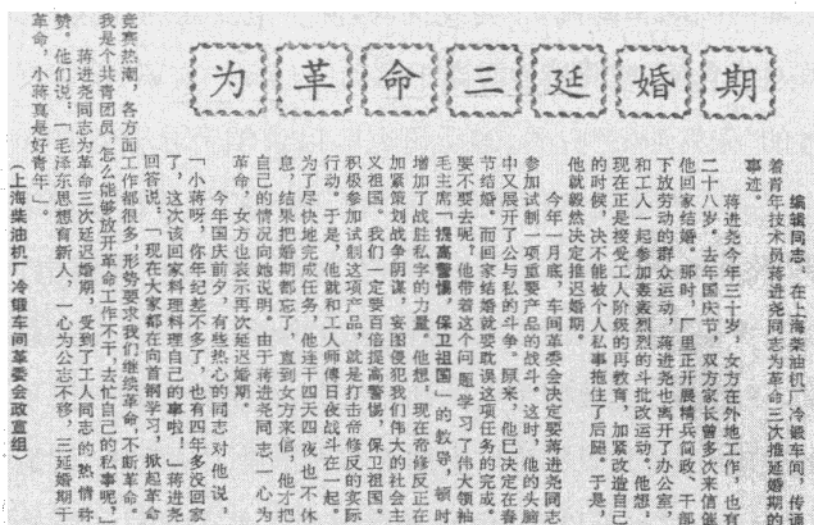 为革命三延婚期
编辑同志：在上海柴油机厂冷锻车间，传诵
着青年技术员蒋进尧同志为革命三次推延婚期的
事迹。
蒋进尧今年三十岁，女方在外地工作，也有
二十八岁。去年国庆节，双方家长曾多次来信催
他回家结婚。那时，厂里正开展精兵简政、干部
下放劳动的群众运动，蒋进尧也离开了办公室，
和工人一起参加轰轰烈烈的斗批改运动。他想，
现在正是接受工人阶级的再教育，加紧改造自己
的时候，决不能被个人私事拖住了后腿。于是，
他就毅然决定推迟婚期。
今年一月底，车间革委会决定要蒋进尧同志
参加试制一项重要产品的战斗。这时，他的头脑
中又展开了公与私的斗争。原来，他已决定在春
节结婚。而回家结婚就要耽误这项任务的完成。
要不要去呢？他带着这个问题学习了伟大领袖
毛主席“提高警惕，保卫祖国”的教导，顿时
增加了战胜私字的力量。他想：现在帝修反正在
加紧策划战争阴谋，妄图侵犯我们伟大的社会主
义祖国。我们一定要百倍提高警惕，保卫祖国。
积极参加试制这项产品，就是打击帝修反的实际
行动。于是，他就和工人师傅日夜战斗在一起。
为了尽快地完成任务，他连干四天四夜也不休
息，结果把婚期都忘了，直到女方来信，他才把
自己的情况向她说明。由于蒋进尧同志一心为
革命，女方也表示再次延迟婚期。
今年国庆前夕，有些热心的同志对他说：
“小蒋呀，你年纪差不多了，也有四年多没回家
了，这次该回家料理料理自己的事啦！”蒋进尧
回答说：“现在大家都在向首钢学习，掀起革命
竞赛热潮，各方面工作都很多，形势要求我们继续革命，不断革命。
我是个共青团员，怎么能够放开革命工作不干，去忙自己的私事呢！”
蒋进尧同志为革命三次延迟婚期，受到了工人同志的热情称
赞。他们说：“毛泽东思想育新人，一心为公志不移，三延婚期干
革命，小蒋真是好青年”。
（上海柴油机厂冷锻车间革委会政宣组）